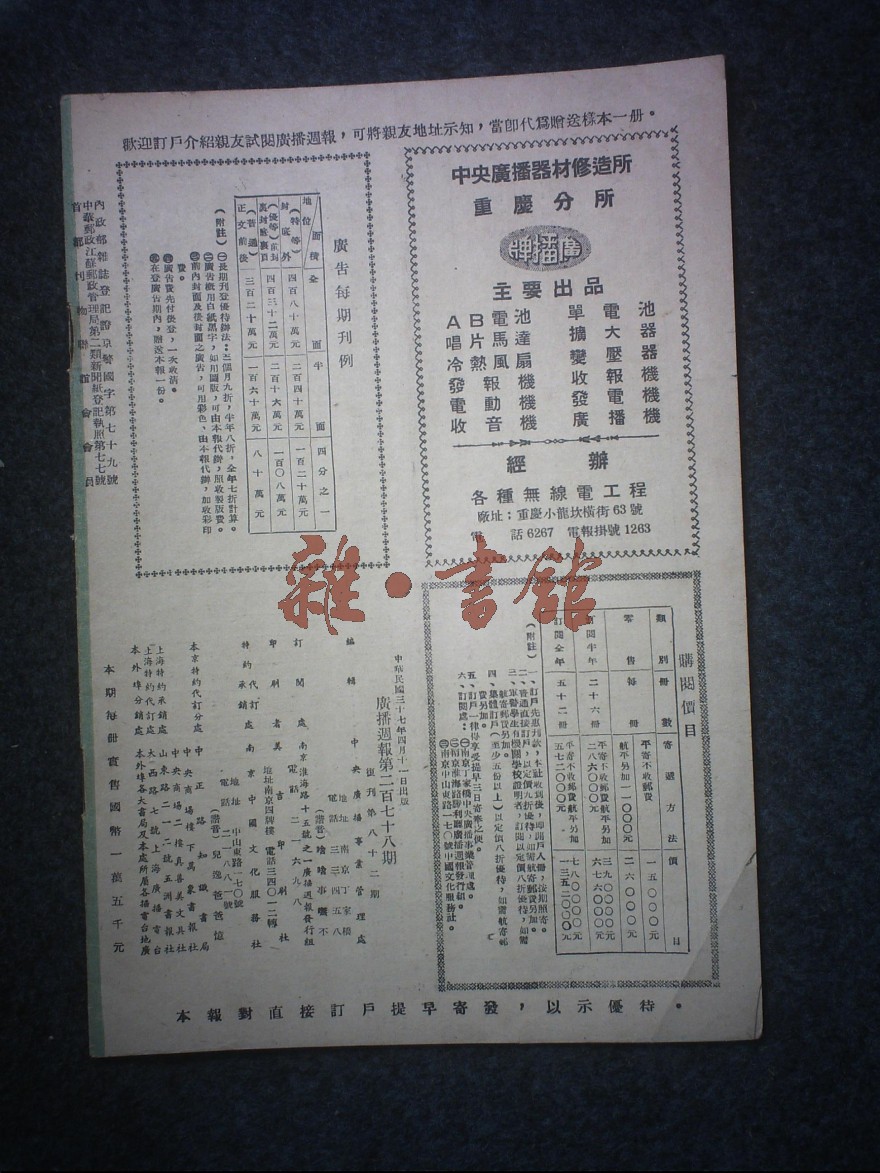 歡迎訂戶介紹親友試閱廣播週報，可將親友地址示知，當卽代爲贈送樣本一册。
中央廣播器材修造所
重慶分所
廣播牌
主要出品
AB電池
單電池
唱片馬達
擴大器
冷熱風扇
變壓器
發報機
收報機
電動機
發電機
收音機
廣播機
經辦
各種無線電工程
廠址：重慶小龍坎橫街63號
電話6267 電報掛號1263
廣告每期刊例
地位 面積 全面 半面 四分之一
（特等）封底外 四百八十萬元 二百四十萬元 一百二十萬元
（優等）前封裏封底裏頁 四百三十二萬元 二百十六萬元 一百〇八萬元
（普通）正文前後 三百二十萬元 一百六十萬元 八十萬元
（附註）㊀長期刊登優待辦法：三個月九折，半年八折，全年七折計算。
㊁廣告概用白紙黑字，如用圖版，可由本報代辦，照收製版費。
㊂前內封面及後封面之廣告，可用彩色，由本報代辦，加收彩印費。
㊃廣告費先付後登，一次收清。
㊄在登廣告期內，贈送本報一份。
內政部雜誌登記證京警國字第七十九號
中華郵政江蘇郵政管理局第二類新聞紙登記執照第七七號
首都刊物聯誼會會員
購閱價目
類別 册數 寄遞方法 價目
零售 每册 平寄不收郵費 一五〇〇〇元
航平另加一一〇〇〇元 二六〇〇〇元
訂閱半年 二十六册 平寄不收郵費 三九〇〇〇〇元
航平另加二八六〇〇〇元 六七六〇〇〇元
訂閱全年 五十二册 平寄不收郵費 七八〇〇〇〇元
航平另加五七二〇〇〇元 一三五二〇〇〇元
（附註）一、訂戶先惠刊款，本社收到後，即開戶入册，按期照寄。
二、普通直接訂戶，以定價九折優待，如需航寄郵費另加。
三、軍警學生有機關學校證明者，訂閱以定價八折優待，如需航寄郵費另加。
四、集體訂戶（至少五份以上）以定價八折優待，如需航寄郵費另加。
五、訂戶一律得享受提早三日寄奉之便。
六、訂閱處：㊀南京丁家橋中央廣播事業管理處。
㊁南京淮海路勝利廳廣播週報發行組。
㊂南京中山東路一七〇號中國文化服務社。
中華民國三十七年四月十一日出版
廣播週報第二百七十八期
復刊第八十二期
編輯 中央廣播事業管理處
地址 南京丁家橋
電話 三三四五八
訂閱處 南京淮海路十五號之一廣播週報發行組
電話 二一六九八
印刷者 美吉印刷社
地址南京四牌樓 電話三四〇一二轉
特約代訂承銷處 南京中國文化服務社
地址 中山東路一七〇號
電話 二二八八一號
本京特約代訂分處 中正路知識書局
中央商場樓下萬象書報社
中央商場二樓真善美文具社
上海特約承銷處 山東路二一二號五洲書報社
上海特約代訂處 大西路七號上海廣播電台
本外埠分銷處 本外埠各大書局及本處所屬各播音台地廣
本期每册實售國幣一萬五千元
本報對直接訂戶提早寄發，以示優待。
雜·書館